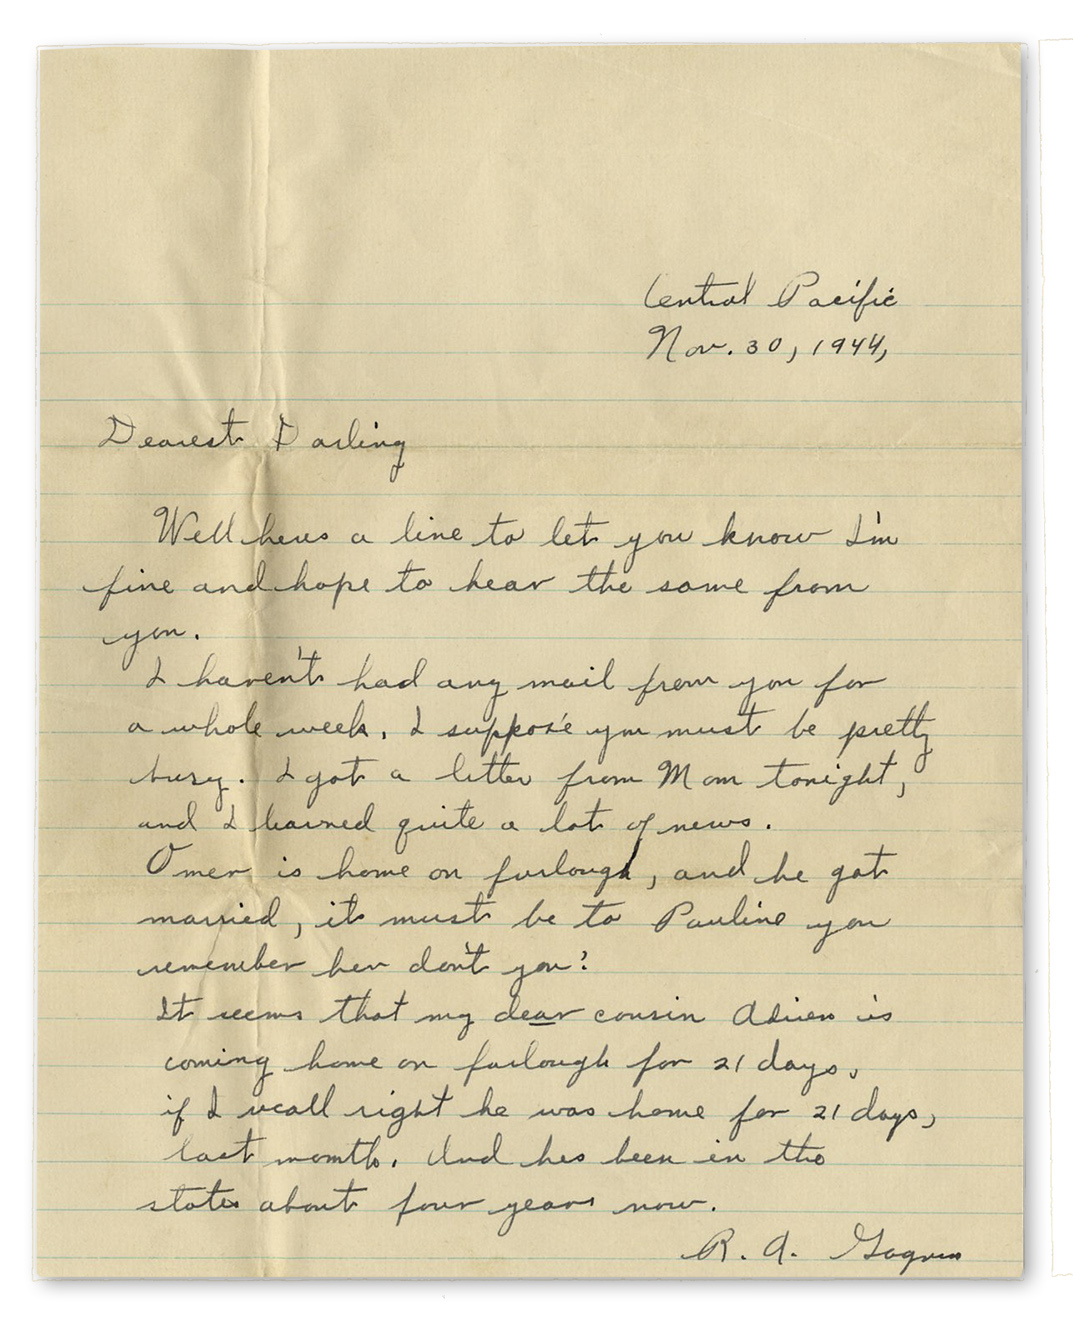 Central Pacific
Nov. 30, 1944,
Dearest Darling
Well heres a line to let you know I'm
fine and hope to hear the same from
you.
I haven't had any mail from you for
a whole week, I suppose you must be pretty
busy. I got a letter from Mom tonight,
and I learned quite a lot of news.
Omer is home on furlough, and he got
married, it must be to Pauline you
remember her don't you?
It seems that my dear cousin Adrien is
coming home on furlough for 21 days,
if I recall right he was home for 21 days,
last month. And hes been in the
states about four years now.
R. A. Gagnon